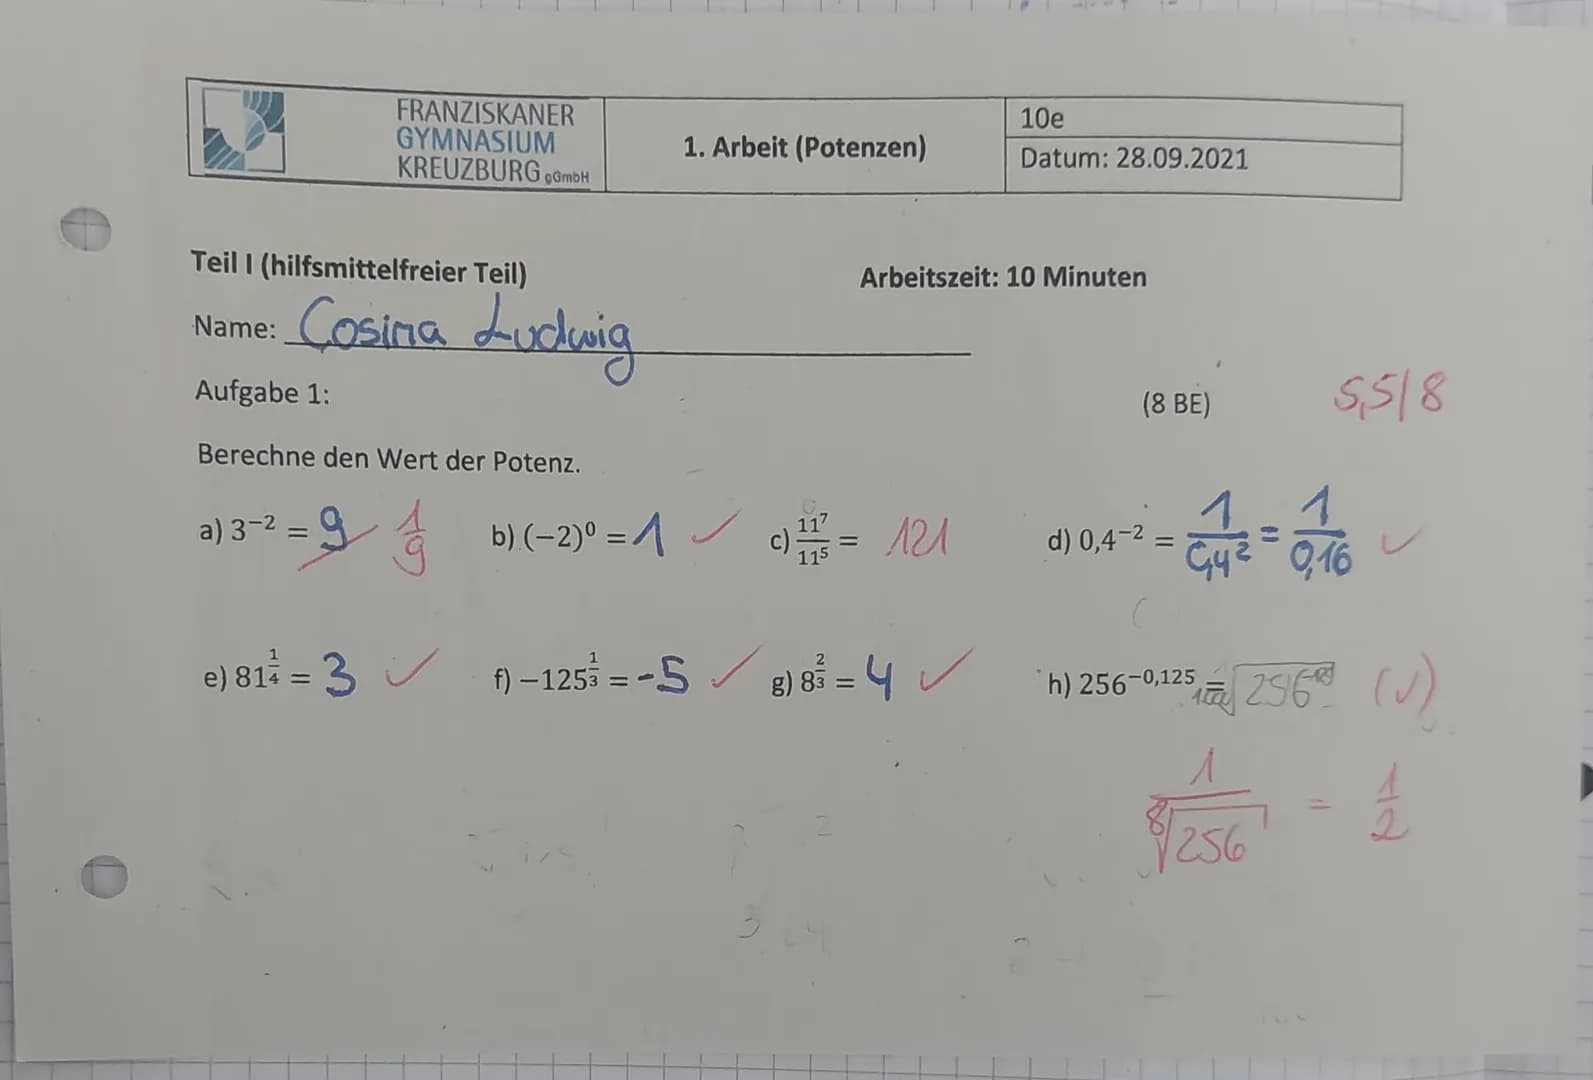 FRANZISKANER
GYMNASIUM
KREUZBURG gGmbH
1. Arbeit (Potenzen)
10e
Datum: 28.09.2021
Teil I (hilfsmittelfreier Teil)
Arbeitszeit: 10 Minuten
Name: Cosima Ludwig
Aufgabe 1:
(8 BE)
5,5/8
Berechne den Wert der Potenz.
a) 3⁻² = 9 1/9
b) (-2)⁰ = 1 ✓
c) 11⁷/11⁵ = 121
d) 0,4⁻² = 1/0,4² = 1/0,16 ✓
e) 81^(1/4) = 3 ✓
f) −125^(1/3) = -5 ✓
g) 8^(2/3) = 4 ✓
h) 256^(−0,125) = √256 (✓)
1/⁸√256 = 1/2